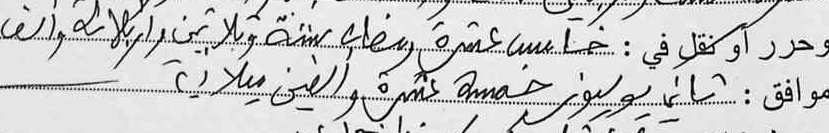 وحرر أو نقل في : خامس عشرة رمضان ستة وثلاثين وأربعمائة وألف
موافق : ثاني يوليوز خمسة عشرة وألفين ميلادية